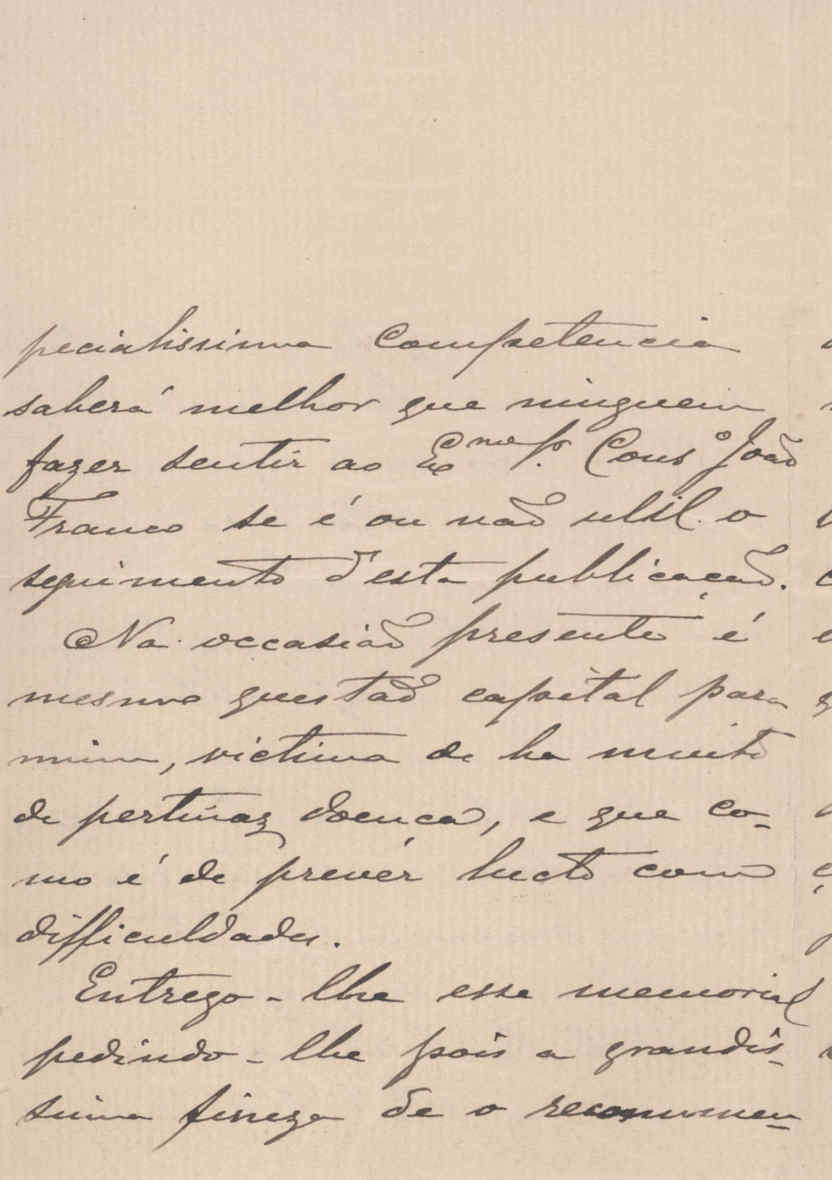 pecialissima competencia
saberá melhor que ninguem
fazer sentir ao Exmo Sr. Consº João
Franco se é ou não util o
seguimento d'esta publicação.
Na occasião presente é
mesmo questão capital para
mim, victima de ha muito
de pertinaz doença, e que co-
mo é de prevêr lucto com
difficuldades.
Entrego-lhe esse memorial
pedindo-lhe pois a grandis-
sima fineza de o recommen-